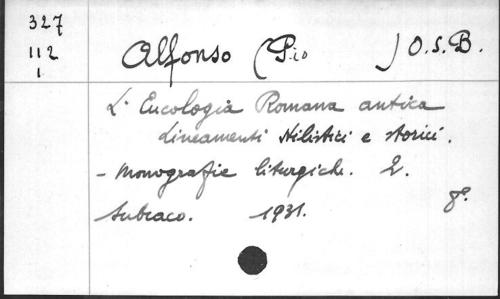 327
112
1
Alfonso (Pio) O.S.B.
L' Eucologia Romana antica
Lineamenti stilistici e storici.
- Monografie liturgiche. 2.
Subiaco. 1931. 8°.